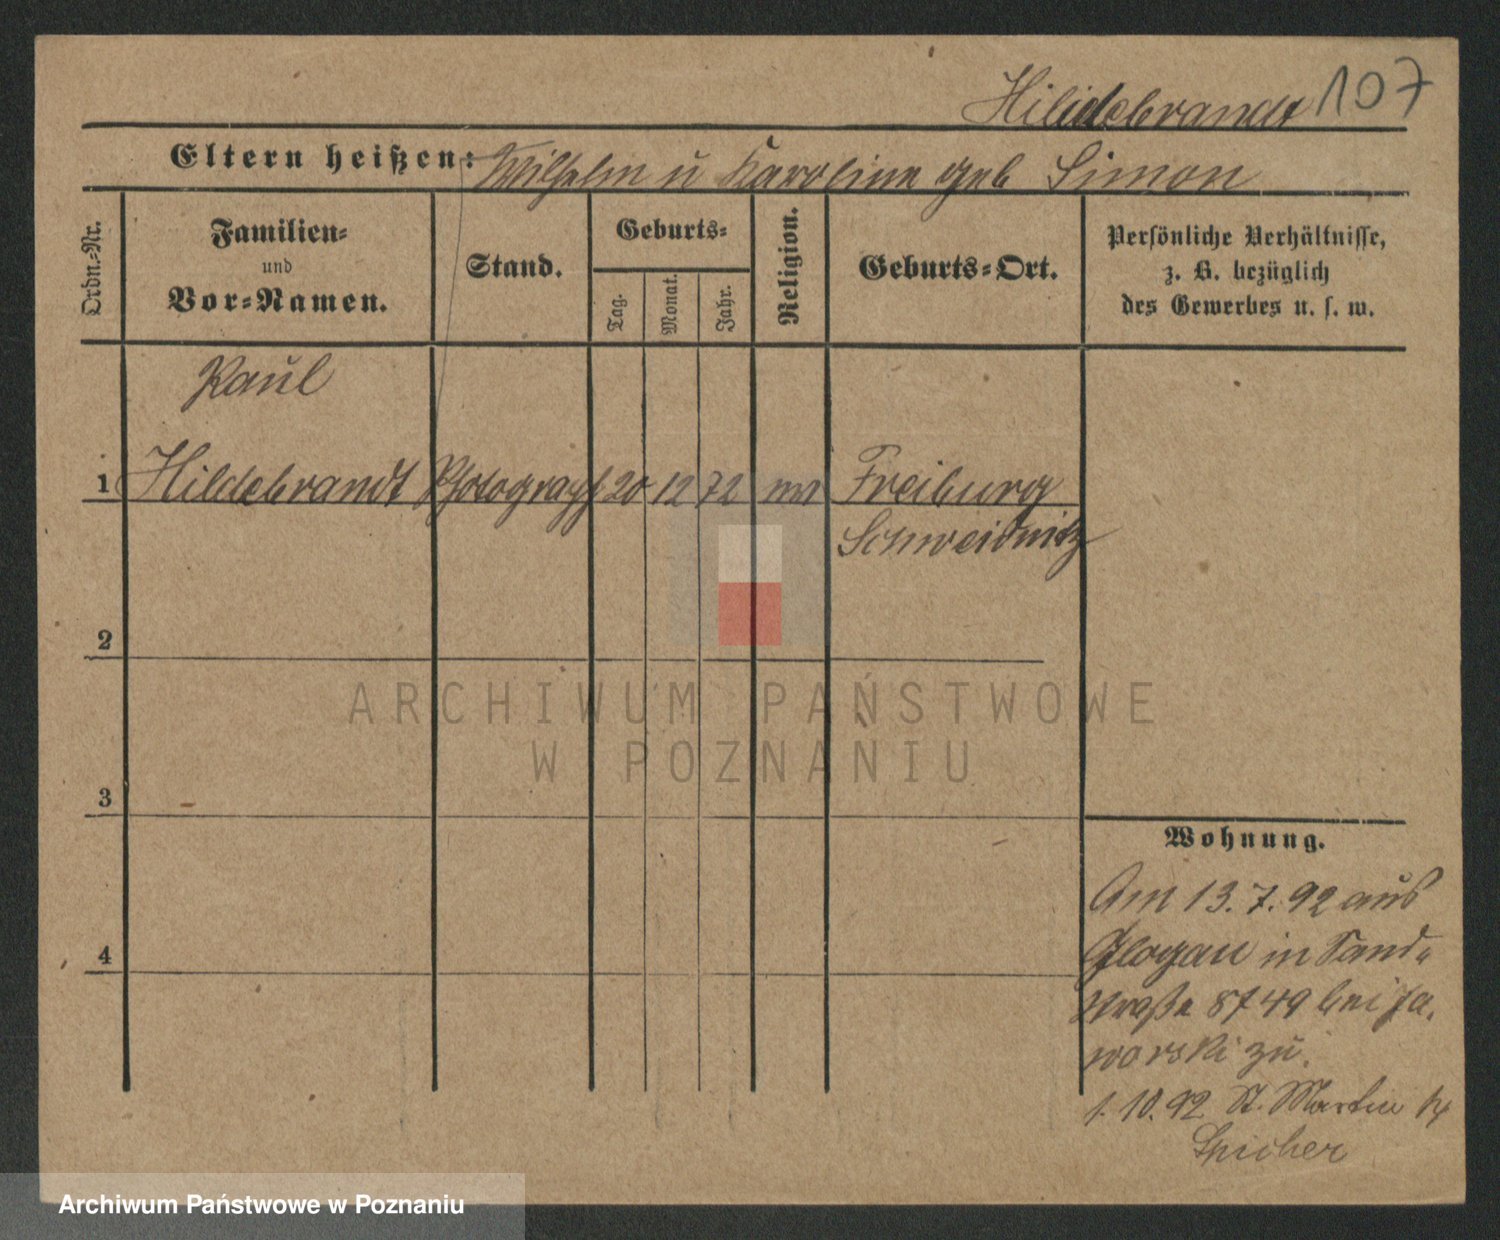 Hildebrandt 107
Eltern heißen: Wilhelm u Karoline geb Simon
Ordn.-Nr.
Familien-
und
Vor-Namen.
Stand.
Geburts-
Tag.
Monat.
Jahr.
Religion.
Geburts-Ort.
Persönliche Verhältnisse,
z. B. bezüglich
des Gewerbes u. s. w.
Paul
1 Hildebrandt Photograph 20 12 72 Freiburg
Schweidnitz
2
3
4
Wohnung.
Am 13.7.92 aus
Glogau in Sand-
straße 8 bei Ja-
worski zu.
1.10.92 St. Martin
Spicher
ARCHIWUM PAŃSTWOWE
W POZNANIU
Archiwum Państwowe w Poznaniu